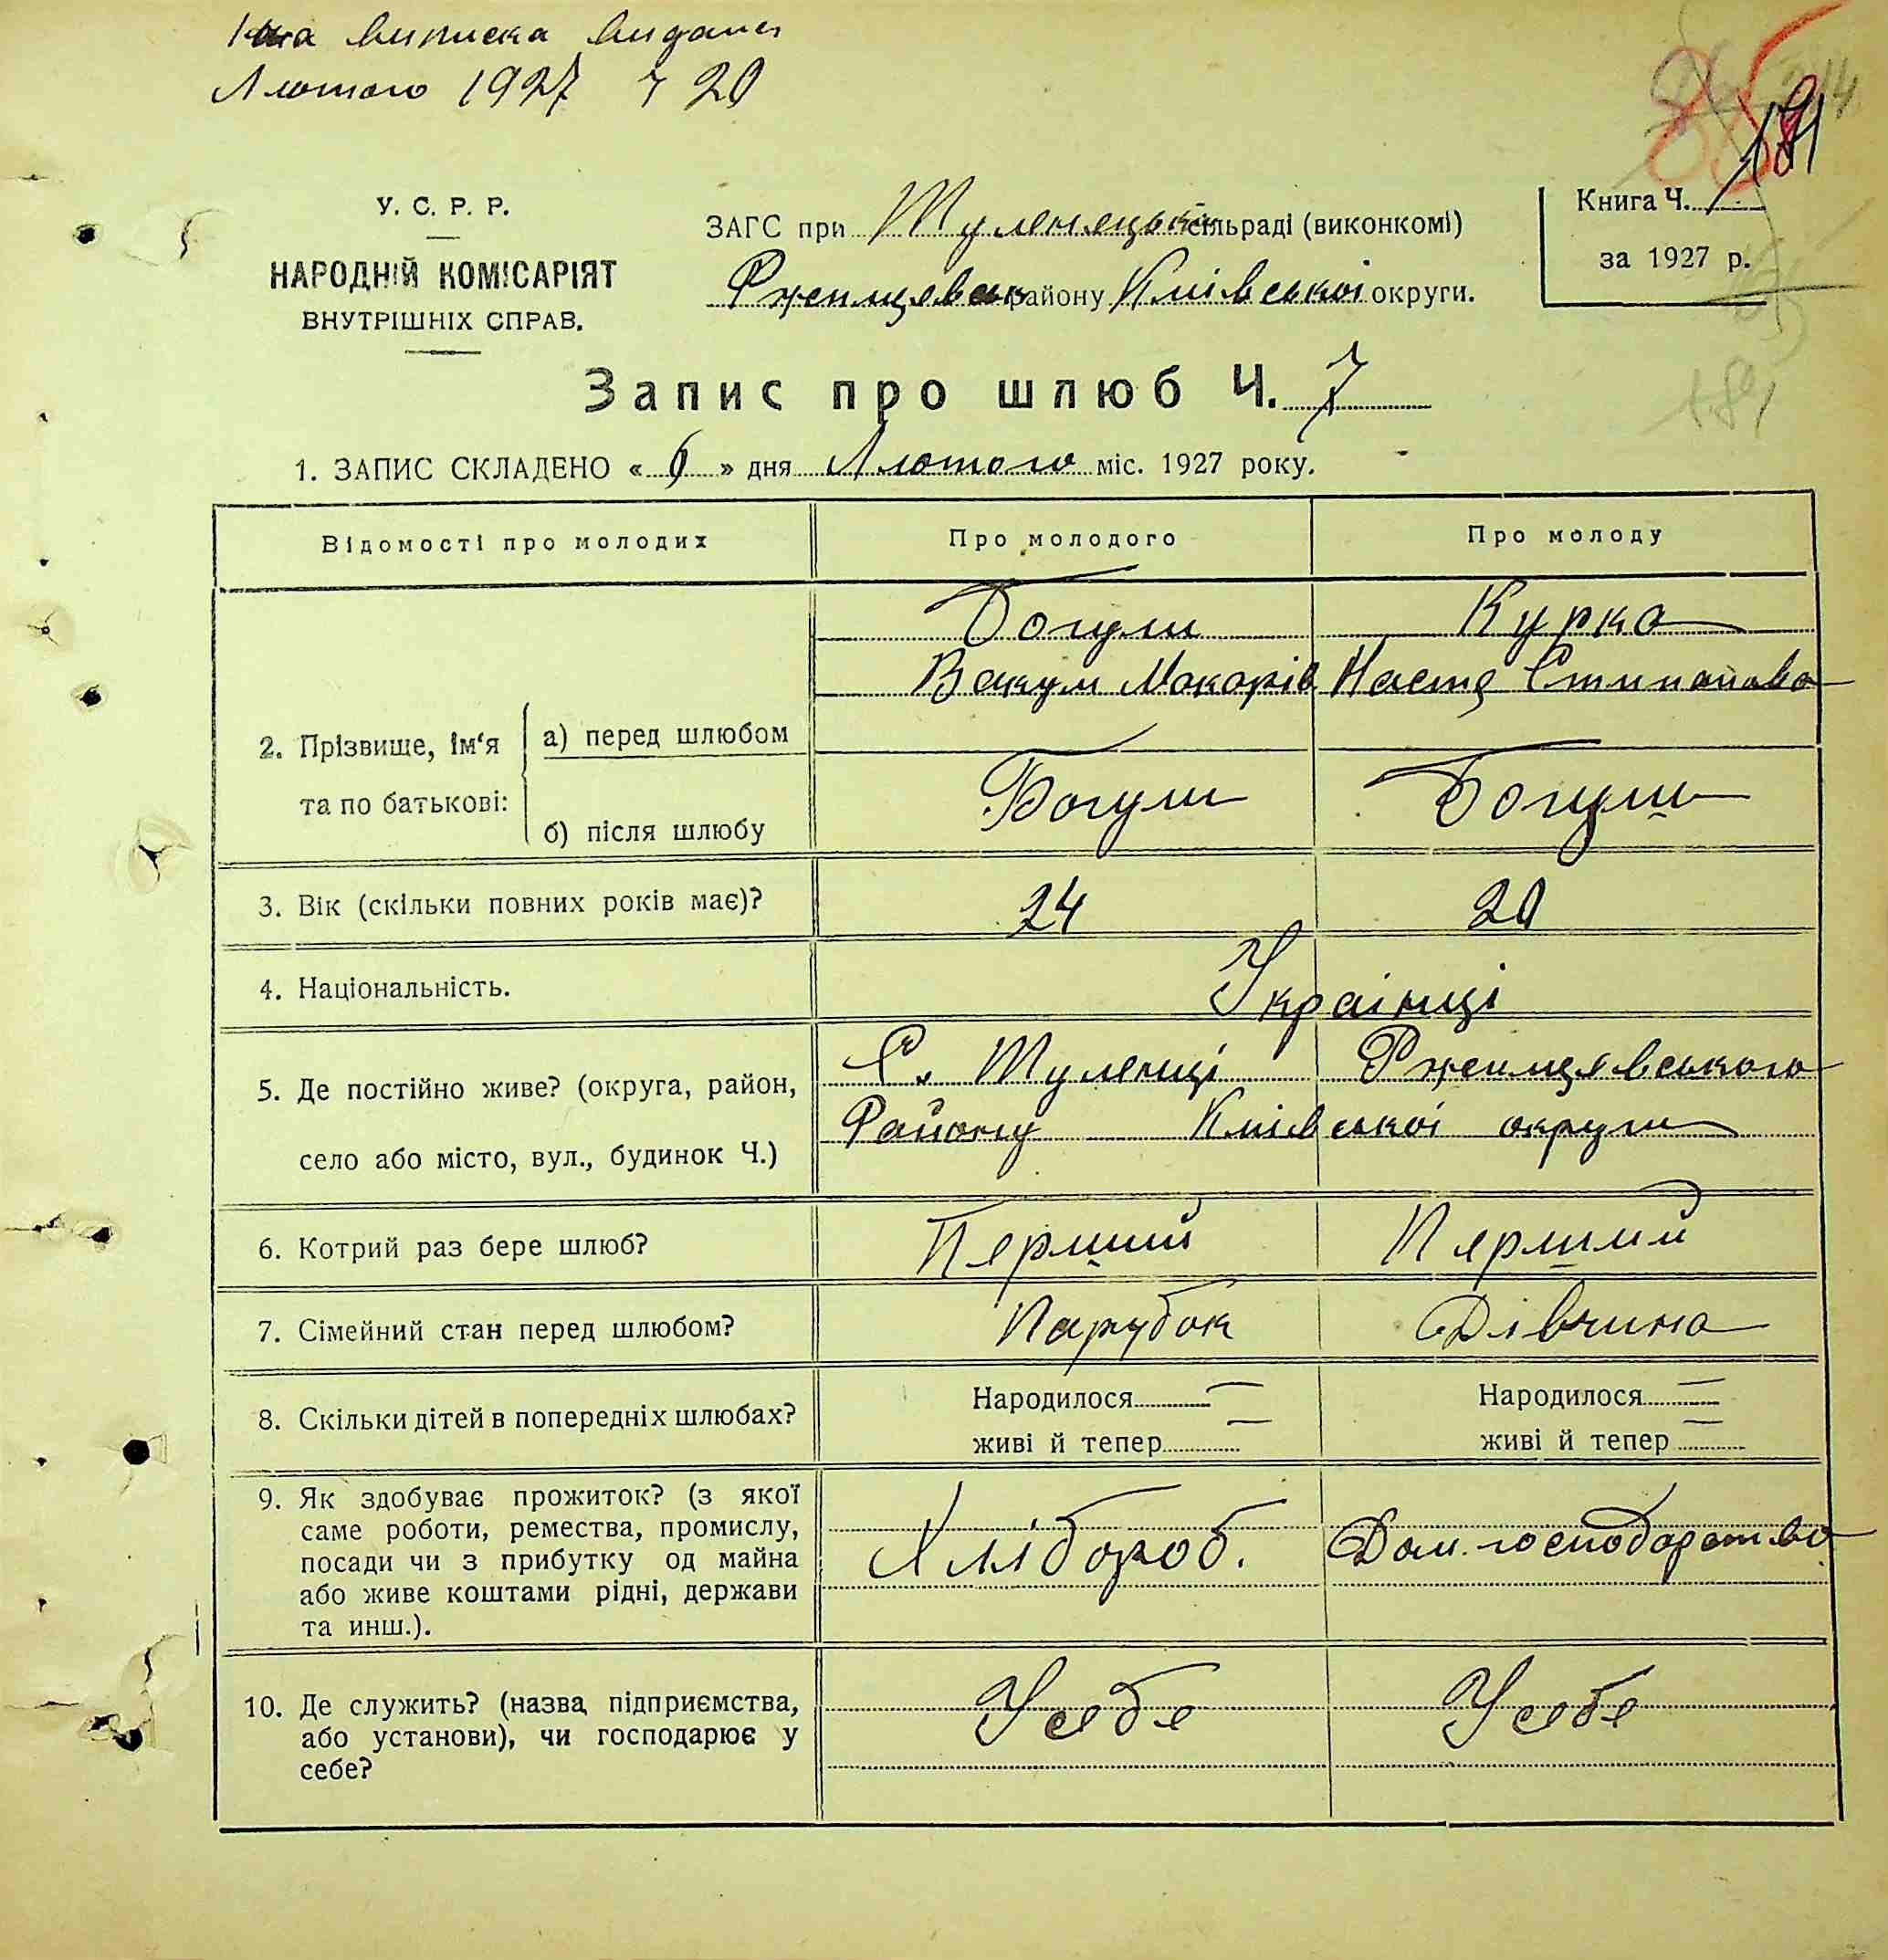 виписка видана
Лютого 1927
191
У. С. Р. Р.
НАРОДНІЙ КОМІСАРІЯТ
ВНУТРІШНІХ СПРАВ.
ЗАГС при Тулинецькій сільраді (виконкомі)
Ржищевськ району Київської округи.
Книга Ч.
за 1927 р.
Запис про шлюб Ч. 7
1. ЗАПИС СКЛАДЕНО « 6 » дня Лютого міс. 1927 року.
Відомості про молодих Про молодого Про молоду
Богуш Курка
Вакум Макарів Настя Стипанова
2. Прізвище, ім'я та по батькові: а) перед шлюбом
б) після шлюбу Богуш Богуш
3. Вік (скільки повних років має)? 24 20
4. Національність. Українці
5. Де постійно живе? (округа, район, С. Тулинці Ржищевського
село або місто, вул., будинок Ч.) Району Київської округи
6. Котрий раз бере шлюб? Перший Перший
7. Сімейний стан перед шлюбом? Парубок Дівчина
8. Скільки дітей в попередніх шлюбах? Народилося — Народилося —
живі й тепер — живі й тепер —
9. Як здобуває прожиток? (з якої
саме роботи, ремества, промислу,
посади чи з прибутку од майна Хлібороб. Дом. господарство
або живе коштами рідні, держави
та инш.).
10. Де служить? (назва підприємства, Усебе Усебе
або установи), чи господарює у
себе?